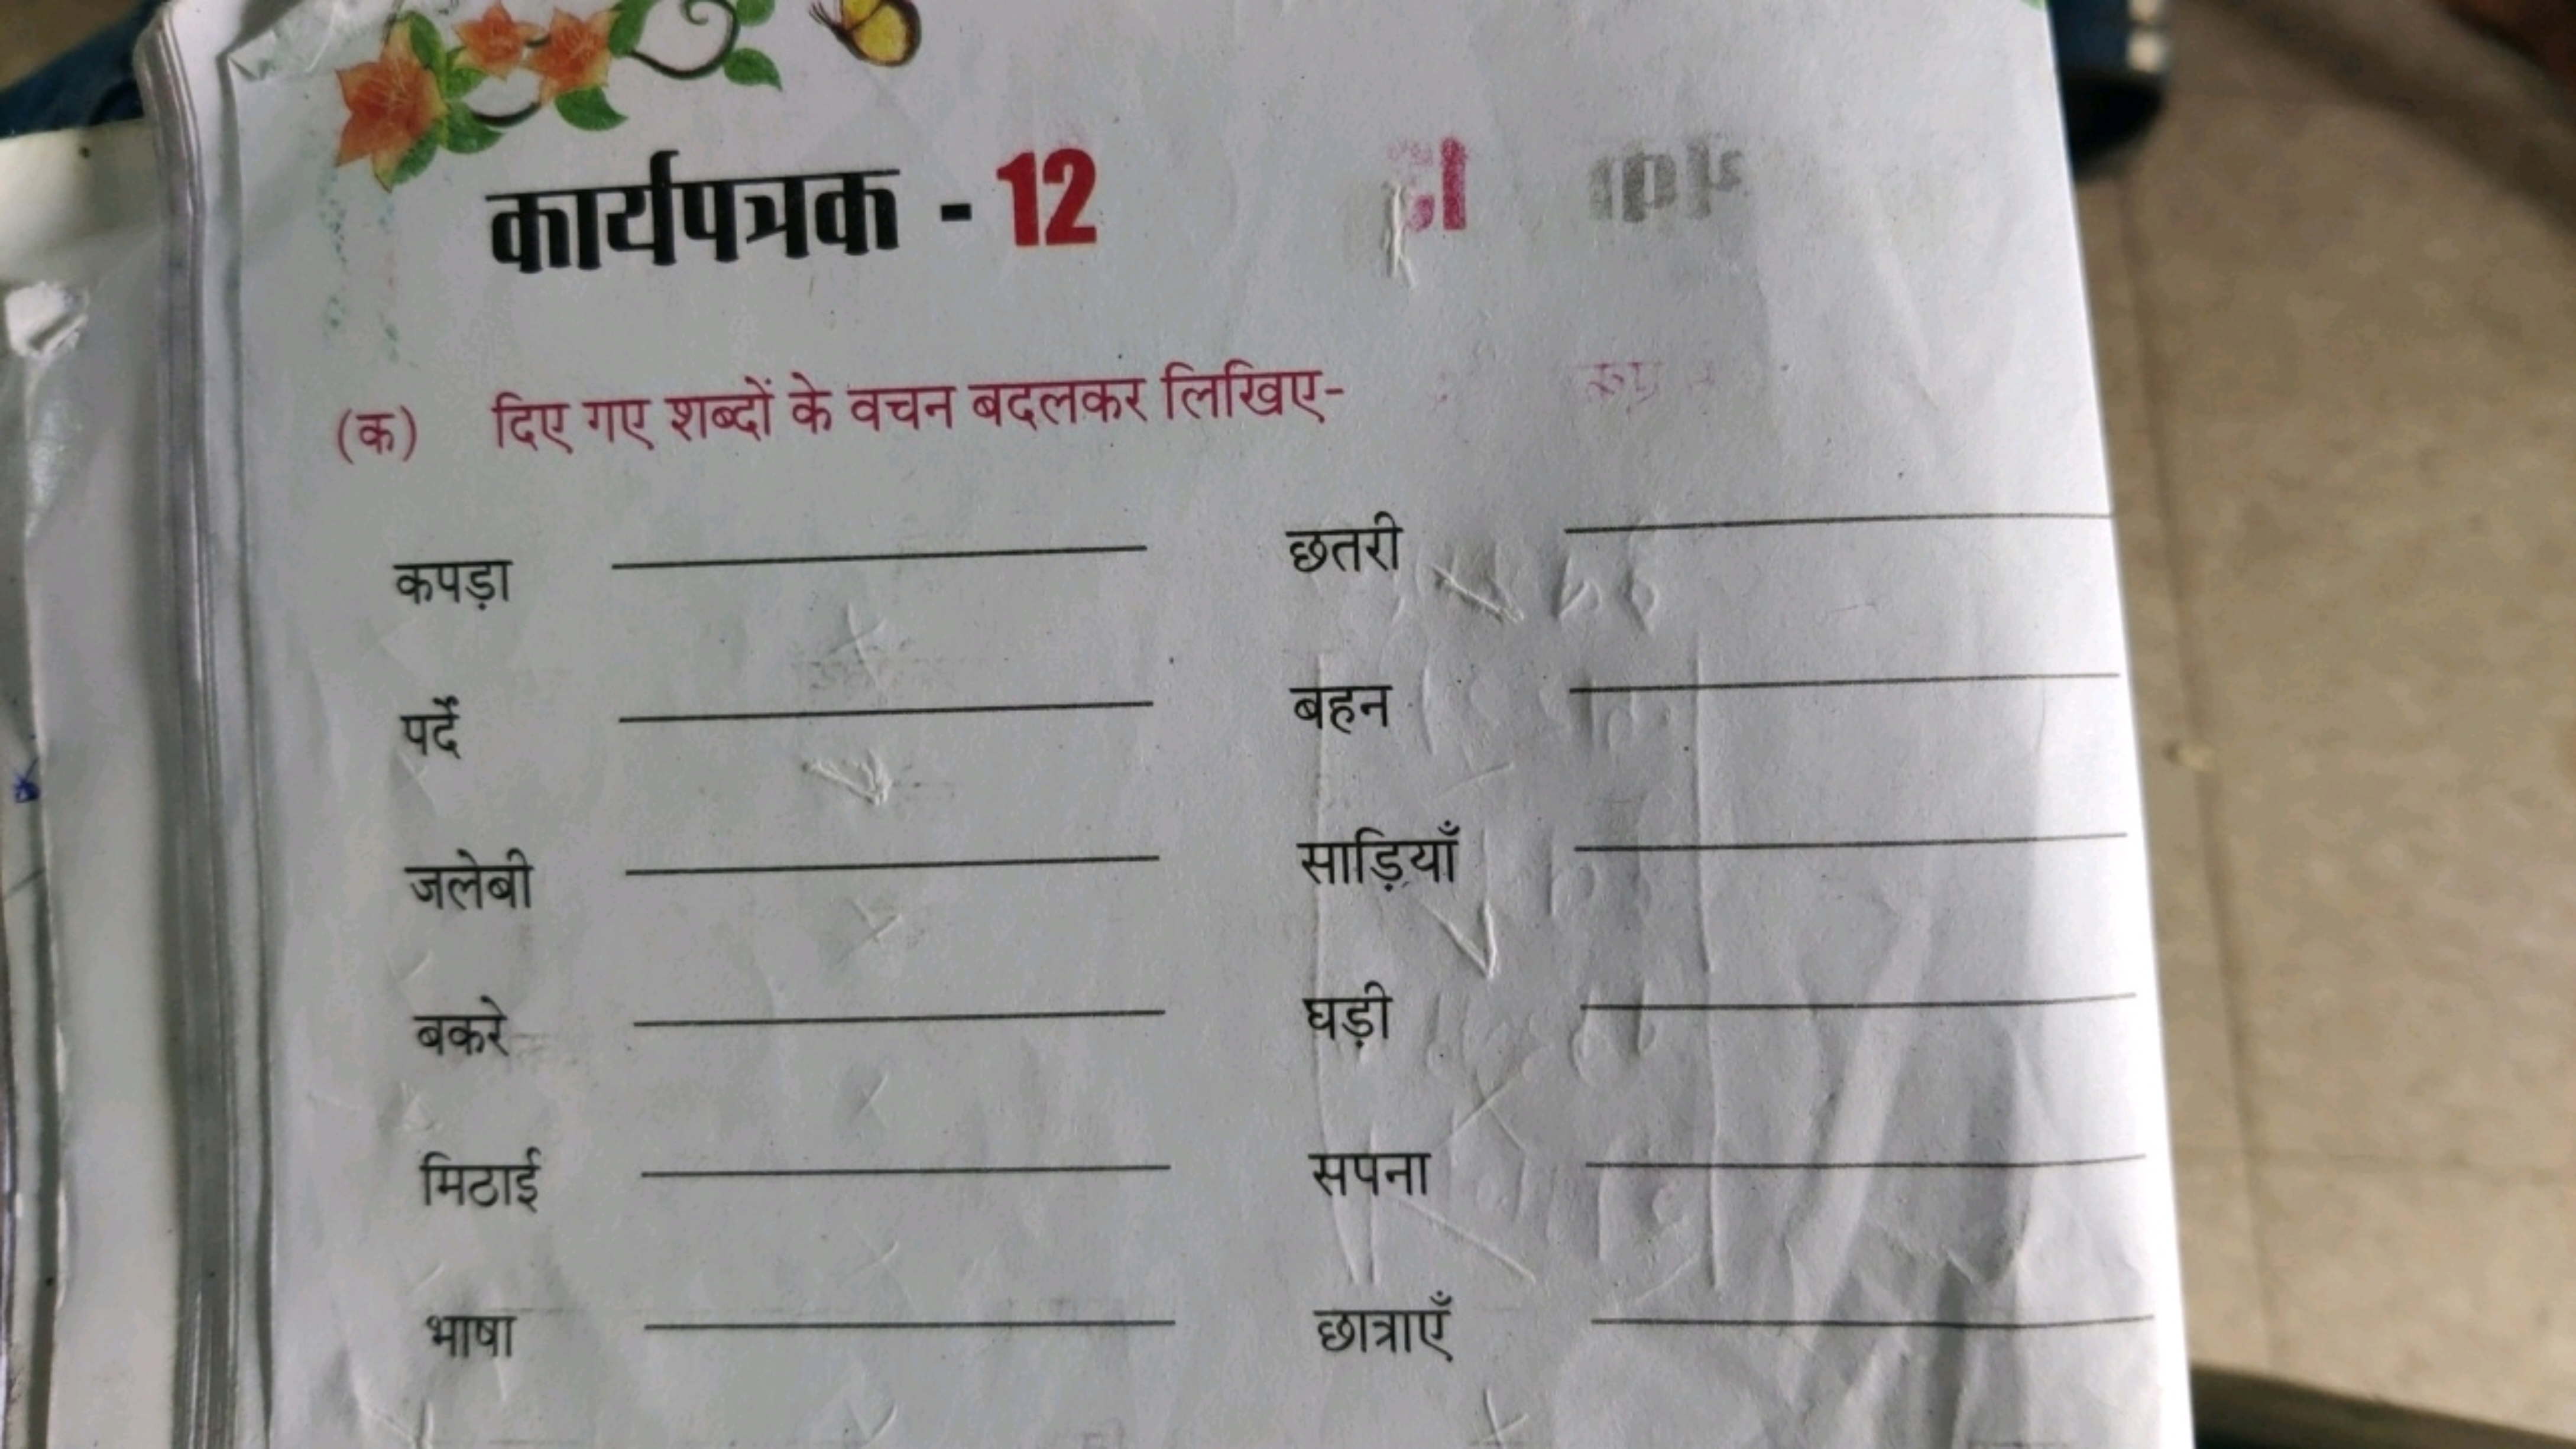 कार्यपत्रक - 12
(क) दिए गए शब्दों के वचन बदलकर लिखिए-
कपड़ा छतरी
पर्दे बहन
जलेबी साड़ियाँ
बकरे घड़ी
मिठाई सपना
भाषा छात्राएँ